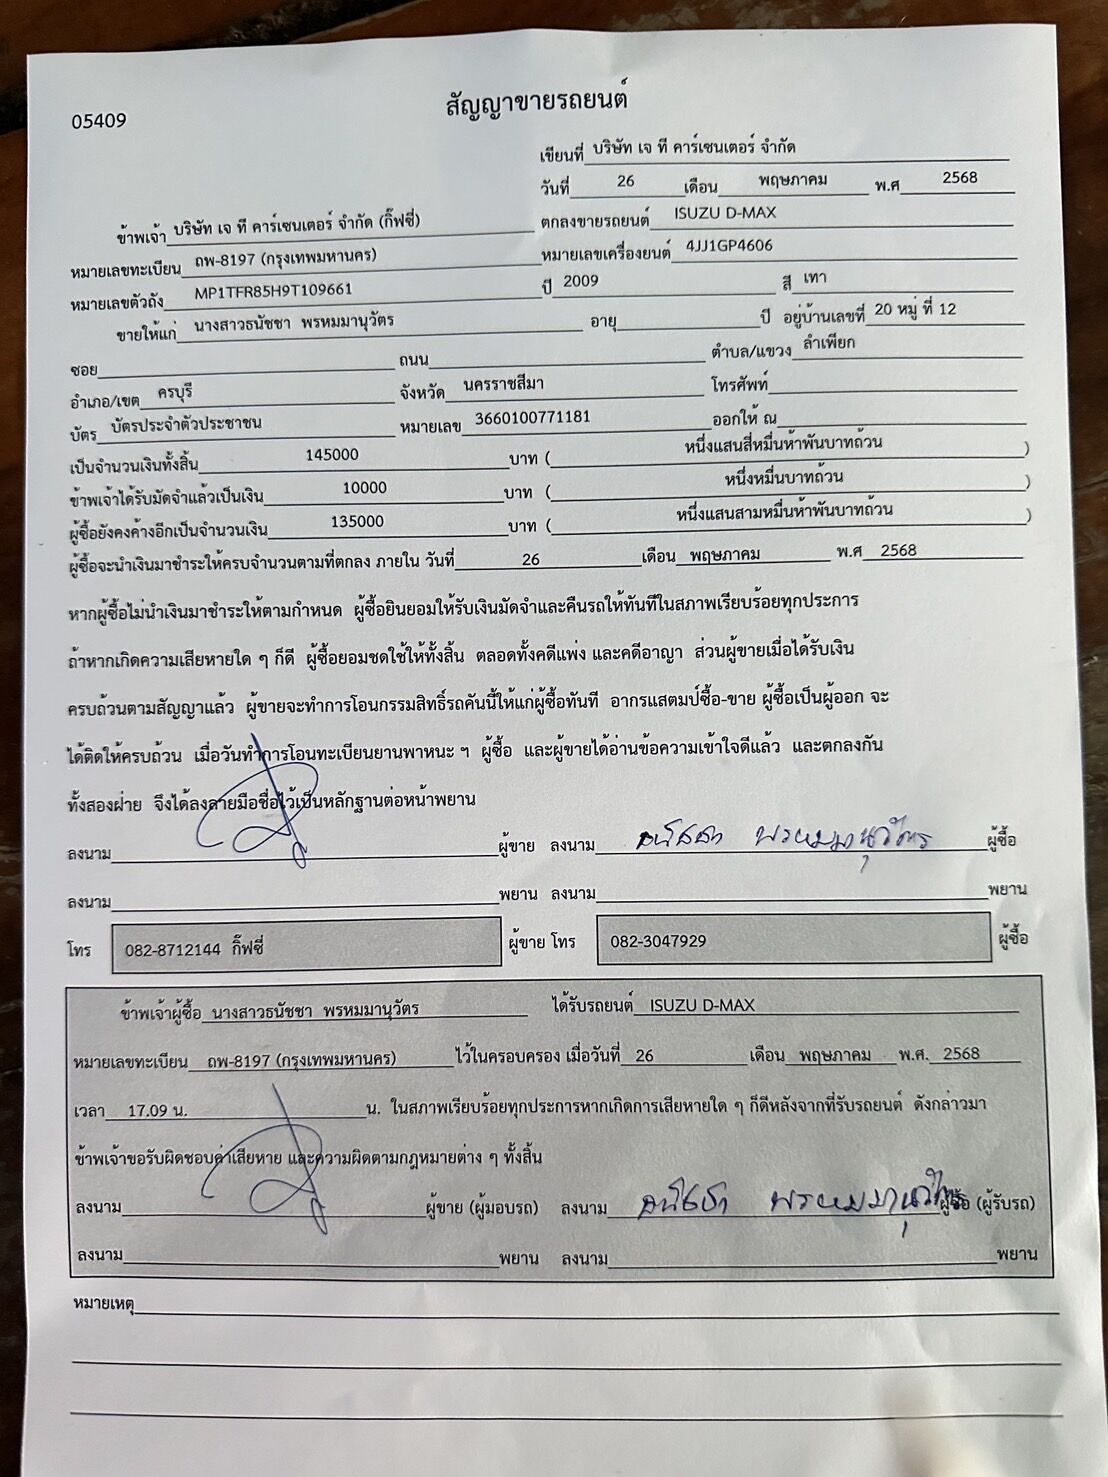 05409
สัญญาขายรถยนต์
เขียนที่ บริษัท เจ ที คาร์เซนเตอร์ จำกัด
วันที่ 26 เดือน พฤษภาคม พ.ศ 2568
ข้าพเจ้า บริษัท เจ ที คาร์เซนเตอร์ จำกัด (กิ๊ฟซี่) ตกลงขายรถยนต์ ISUZU D-MAX
หมายเลขทะเบียน ถพ-8197 (กรุงเทพมหานคร) หมายเลขเครื่องยนต์ 4JJ1GP4606
หมายเลขตัวถัง MP1TFR85H9T109661 ปี 2009 สี เทา
ขายให้แก่ นางสาวธนัชชา พรหมมานุวัตร อายุ ปี อยู่บ้านเลขที่ 20 หมู่ ที่ 12
ซอย ถนน ตำบล/แขวง ลำเพียก
อำเภอ/เขต ครบุรี จังหวัด นครราชสีมา โทรศัพท์
บัตร บัตรประจำตัวประชาชน หมายเลข 3660100771181 ออกให้ ณ
เป็นจำนวนเงินทั้งสิ้น 145000 บาท ( หนึ่งแสนสี่หมื่นห้าพันบาทถ้วน )
ข้าพเจ้าได้รับมัดจำแล้วเป็นเงิน 10000 บาท ( หนึ่งหมื่นบาทถ้วน )
ผู้ซื้อยังคงค้างอีกเป็นจำนวนเงิน 135000 บาท ( หนึ่งแสนสามหมื่นห้าพันบาทถ้วน )
ผู้ซื้อจะนำเงินมาชำระให้ครบจำนวนตามที่ตกลง ภายใน วันที่ 26 เดือน พฤษภาคม พ.ศ 2568
หากผู้ซื้อไม่นำเงินมาชำระให้ตามกำหนด ผู้ซื้อยินยอมให้รับเงินมัดจำและคืนรถให้ทันทีในสภาพเรียบร้อยทุกประการ
ถ้าหากเกิดความเสียหายใด ๆ ก็ดี ผู้ซื้อยอมชดใช้ให้ทั้งสิ้น ตลอดทั้งคดีแพ่ง และคดีอาญา ส่วนผู้ขายเมื่อได้รับเงิน
ครบถ้วนตามสัญญาแล้ว ผู้ขายจะทำการโอนกรรมสิทธิ์รถคันนี้ให้แก่ผู้ซื้อทันที อากรแสตมป์ซื้อ-ขาย ผู้ซื้อเป็นผู้ออก จะ
ได้ติดให้ครบถ้วน เมื่อวันทำการโอนทะเบียนยานพาหนะ ฯ ผู้ซื้อ และผู้ขายได้อ่านข้อความเข้าใจดีแล้ว และตกลงกัน
ทั้งสองฝ่าย จึงได้ลงลายมือชื่อไว้เป็นหลักฐานต่อหน้าพยาน
ลงนาม ผู้ขาย ลงนาม ธนัชชา พรหมมานุวัตร ผู้ซื้อ
ลงนาม พยาน ลงนาม พยาน
โทร 082-8712144 กิ๊ฟซี่ ผู้ขาย โทร 082-3047929 ผู้ซื้อ
ข้าพเจ้าผู้ซื้อ นางสาวธนัชชา พรหมมานุวัตร ได้รับรถยนต์ ISUZU D-MAX
หมายเลขทะเบียน ถพ-8197 (กรุงเทพมหานคร) ไว้ในครอบครอง เมื่อวันที่ 26 เดือน พฤษภาคม พ.ศ. 2568
เวลา 17.09 น. น. ในสภาพเรียบร้อยทุกประการหากเกิดการเสียหายใด ๆ ก็ดีหลังจากที่รับรถยนต์ ดังกล่าวมา
ข้าพเจ้าขอรับผิดชอบค่าเสียหาย และความผิดตามกฎหมายต่าง ๆ ทั้งสิ้น
ลงนาม ผู้ขาย (ผู้มอบรถ) ลงนาม ธนัชชา พรหมมานุวัตร ผู้ซื้อ (ผู้รับรถ)
ลงนาม พยาน ลงนาม พยาน
หมายเหตุ